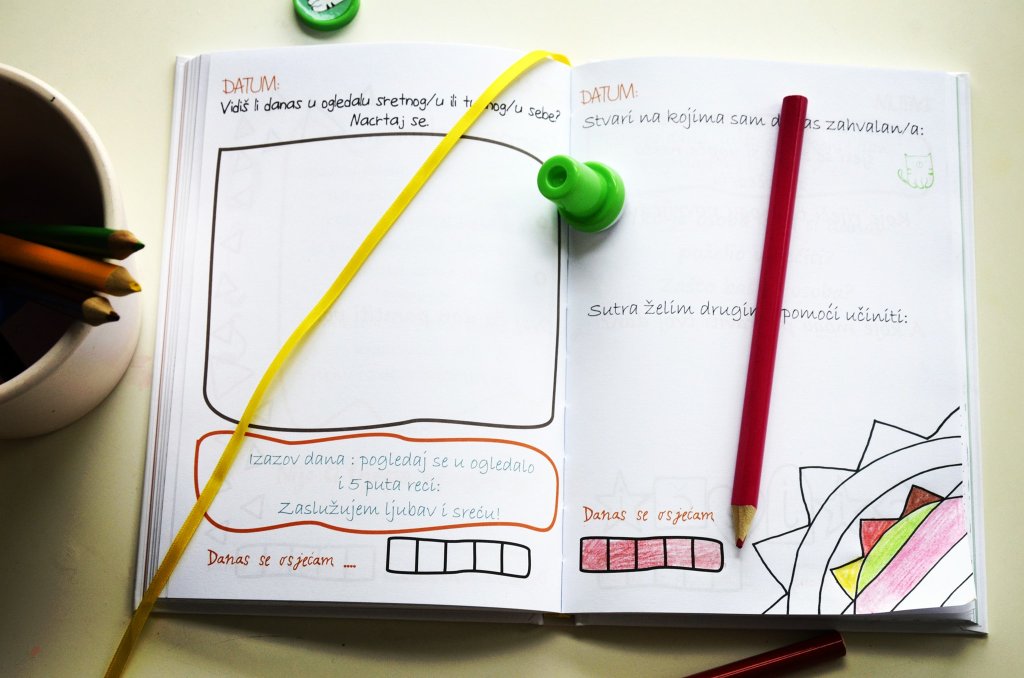 DATUM:
Vidiš li danas u ogledalu sretnog/u ili sebe?
Nacrtaj se.
Izazov dana : pogledaj se u ogledalo
i 5 puta reci:
Zaslužujem ljubav i sreću!
Danas se osjećam ....
DATUM:
Stvari na kojima sam zahvalan/a:
Sutra želim pomoći učiniti:
Danas se osjećam